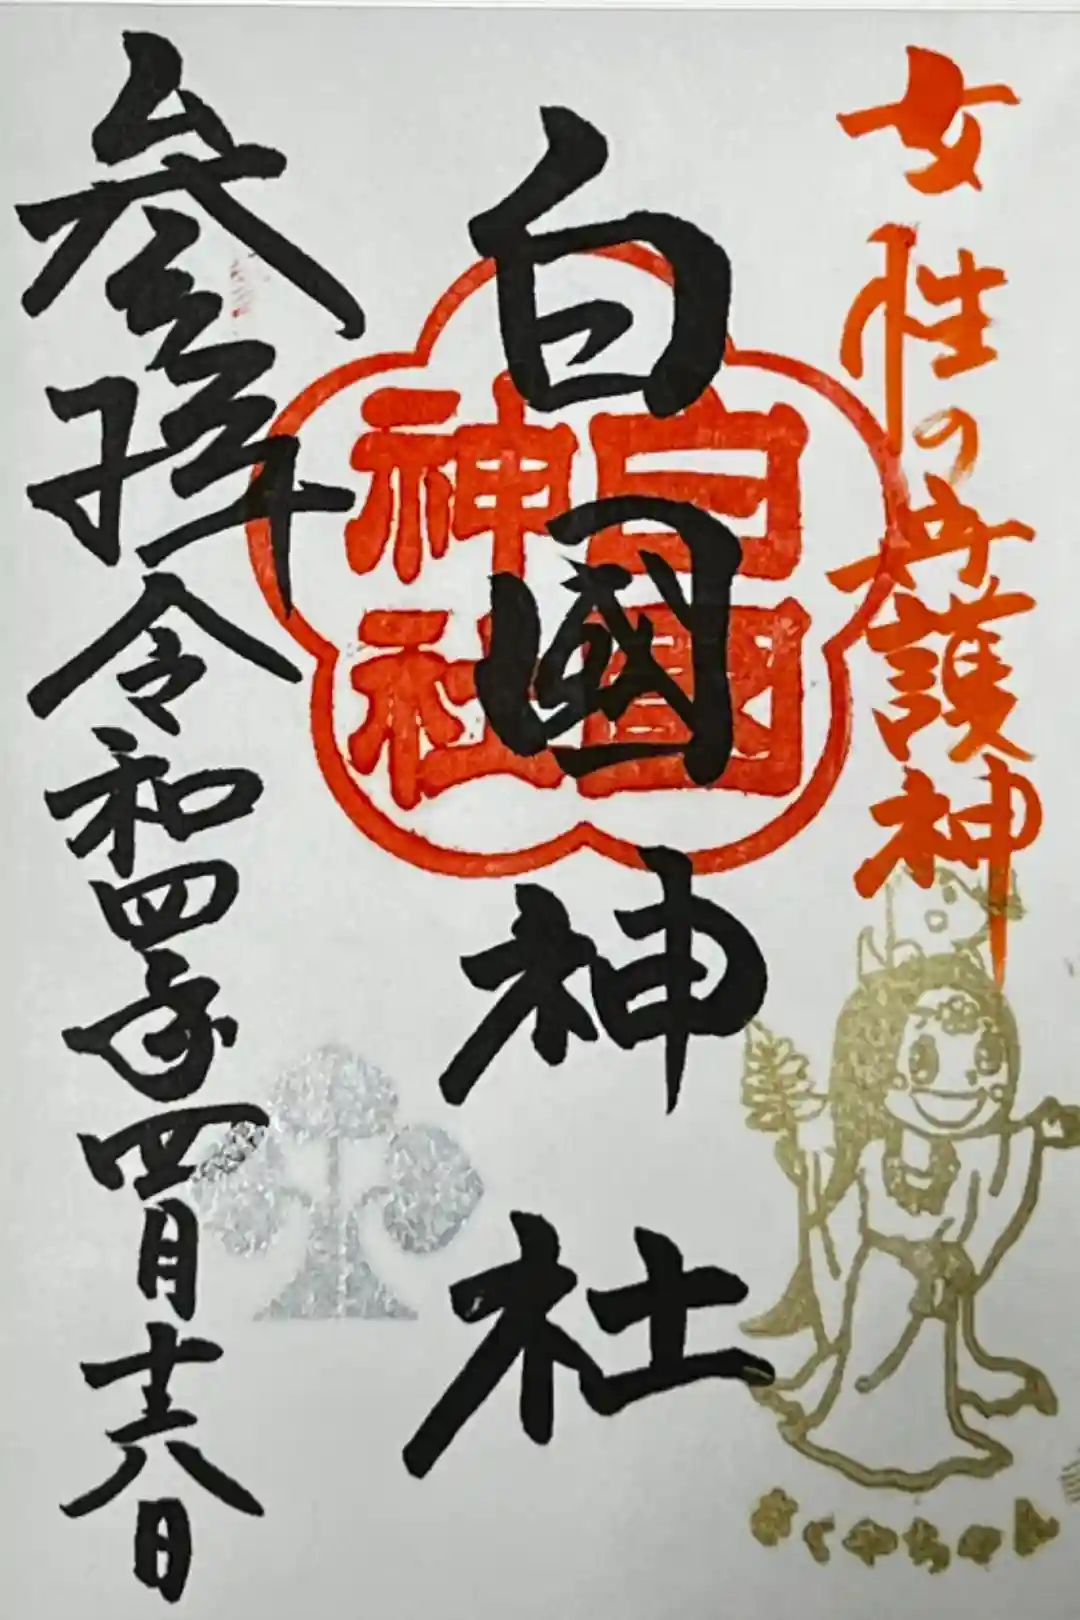 女性の守護神
白國神社
白國
神社
参拝 令和四年四月十六日
さくやちゃん